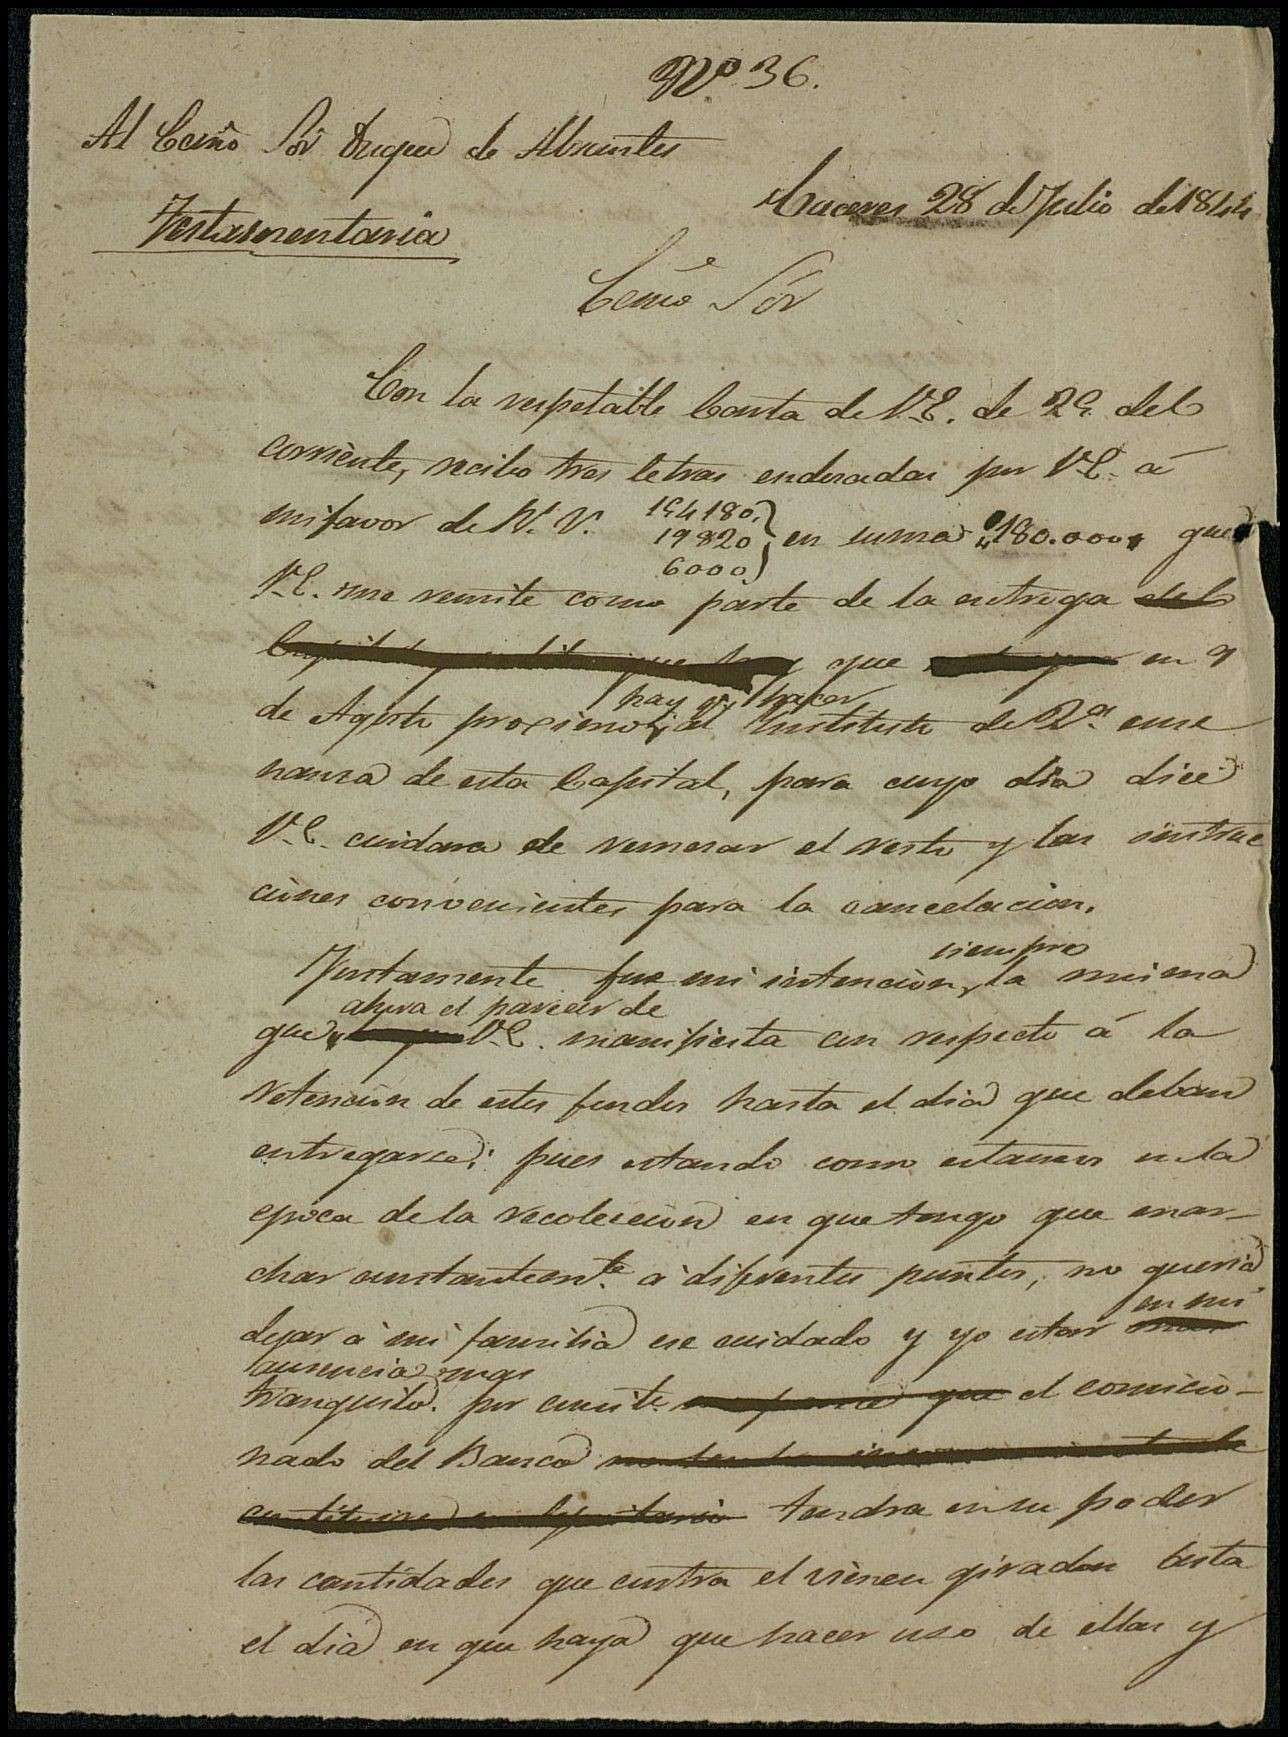 Nº 36.
Al Ecmõ Sõr Duque de Abrantes
Caceres 28 de Julio de 1844
Testamentaria
Ecmõ Sõr
Con la respetable Carta de V.E. de 25 del
corriente, recibo tres letras endosadas por V.E. á
mi favor de Rs. Vn. 154180,
19820
6000 } en suma 180.000, que
V.E. me remite como parte de la entrega del
que en 9
hay qe hacer
de Agosto procsimo, al Instituto de 2ª. ense
ñanza de esta Capital, para cuyo dia dice
V.E. cuidara de remesar el resto y las instruc
ciones convenientes para la cancelacion.
siempre
Justamente fue mi intencion, la misma
ahora el parecer de
que V.E. manifiesta con respecto á la
retencion de estos fondos hasta el dia que deban
entregarse; pues estando como estamos en la
epoca de la recoleccion en que tengo que mar-
char constantemte. á diferentes puntos, no queria
en mi
dejar á mi familia ese cuidado y yo estar
ausencia mas
tranquilo. por cuenta el comicio-
nado del Banco
tendra en su poder
las cantidades que contra el vienen giradas hasta
el dia en que haya que hacer uso de ellas y